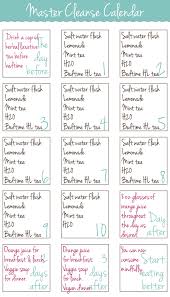 Master Cleanse Calendar
Drink a cup of
herbal laxative
tea before
bedtime
The
day
before
Salt water flush
Lemonade
Mint tea
H2O
Bedtime HL tea
1
Salt water flush
Lemonade
Mint tea
H2O
Bedtime HL tea
2
Salt water flush
Lemonade
Mint tea
H2O
Bedtime HL tea 3
Salt water flush
Lemonade
Mint tea
H2O
Bedtime HL tea 4
Salt water flush
Lemonade
Mint tea
H2O
Bedtime HL tea 5
Salt water flush
Lemonade
Mint tea
H2O
Bedtime HL tea 6
Salt water flush
Lemonade
Mint tea
H2O
Bedtime HL tea 7
Salt water flush
Lemonade
Mint tea
H2O
Bedtime HL tea 8
Salt water flush
Lemonade
Mint tea
H2O
Bedtime HL tea 9
Salt water flush
Lemonade
Mint tea
H2O
Bedtime HL tea 10
glasses of
orange juice
throughout Day
day as
desired after
Orange juice
for breakfast & lunch
Veggie soup days
for dinner after
Orange juice
for breakfast
Veggie soup days
for dinner after
You can now
consume Start
mindfully eating
better